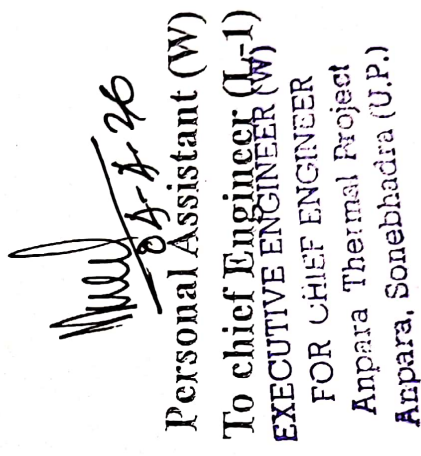 04-4-26
Personal Assistant (W)
To chief Engineer (L-1)
EXECUTIVE ENGINEER (W)
FOR CHIEF ENGINEER
Anpara Thermal Project
Anpara, Sonebhadra (U.P.)